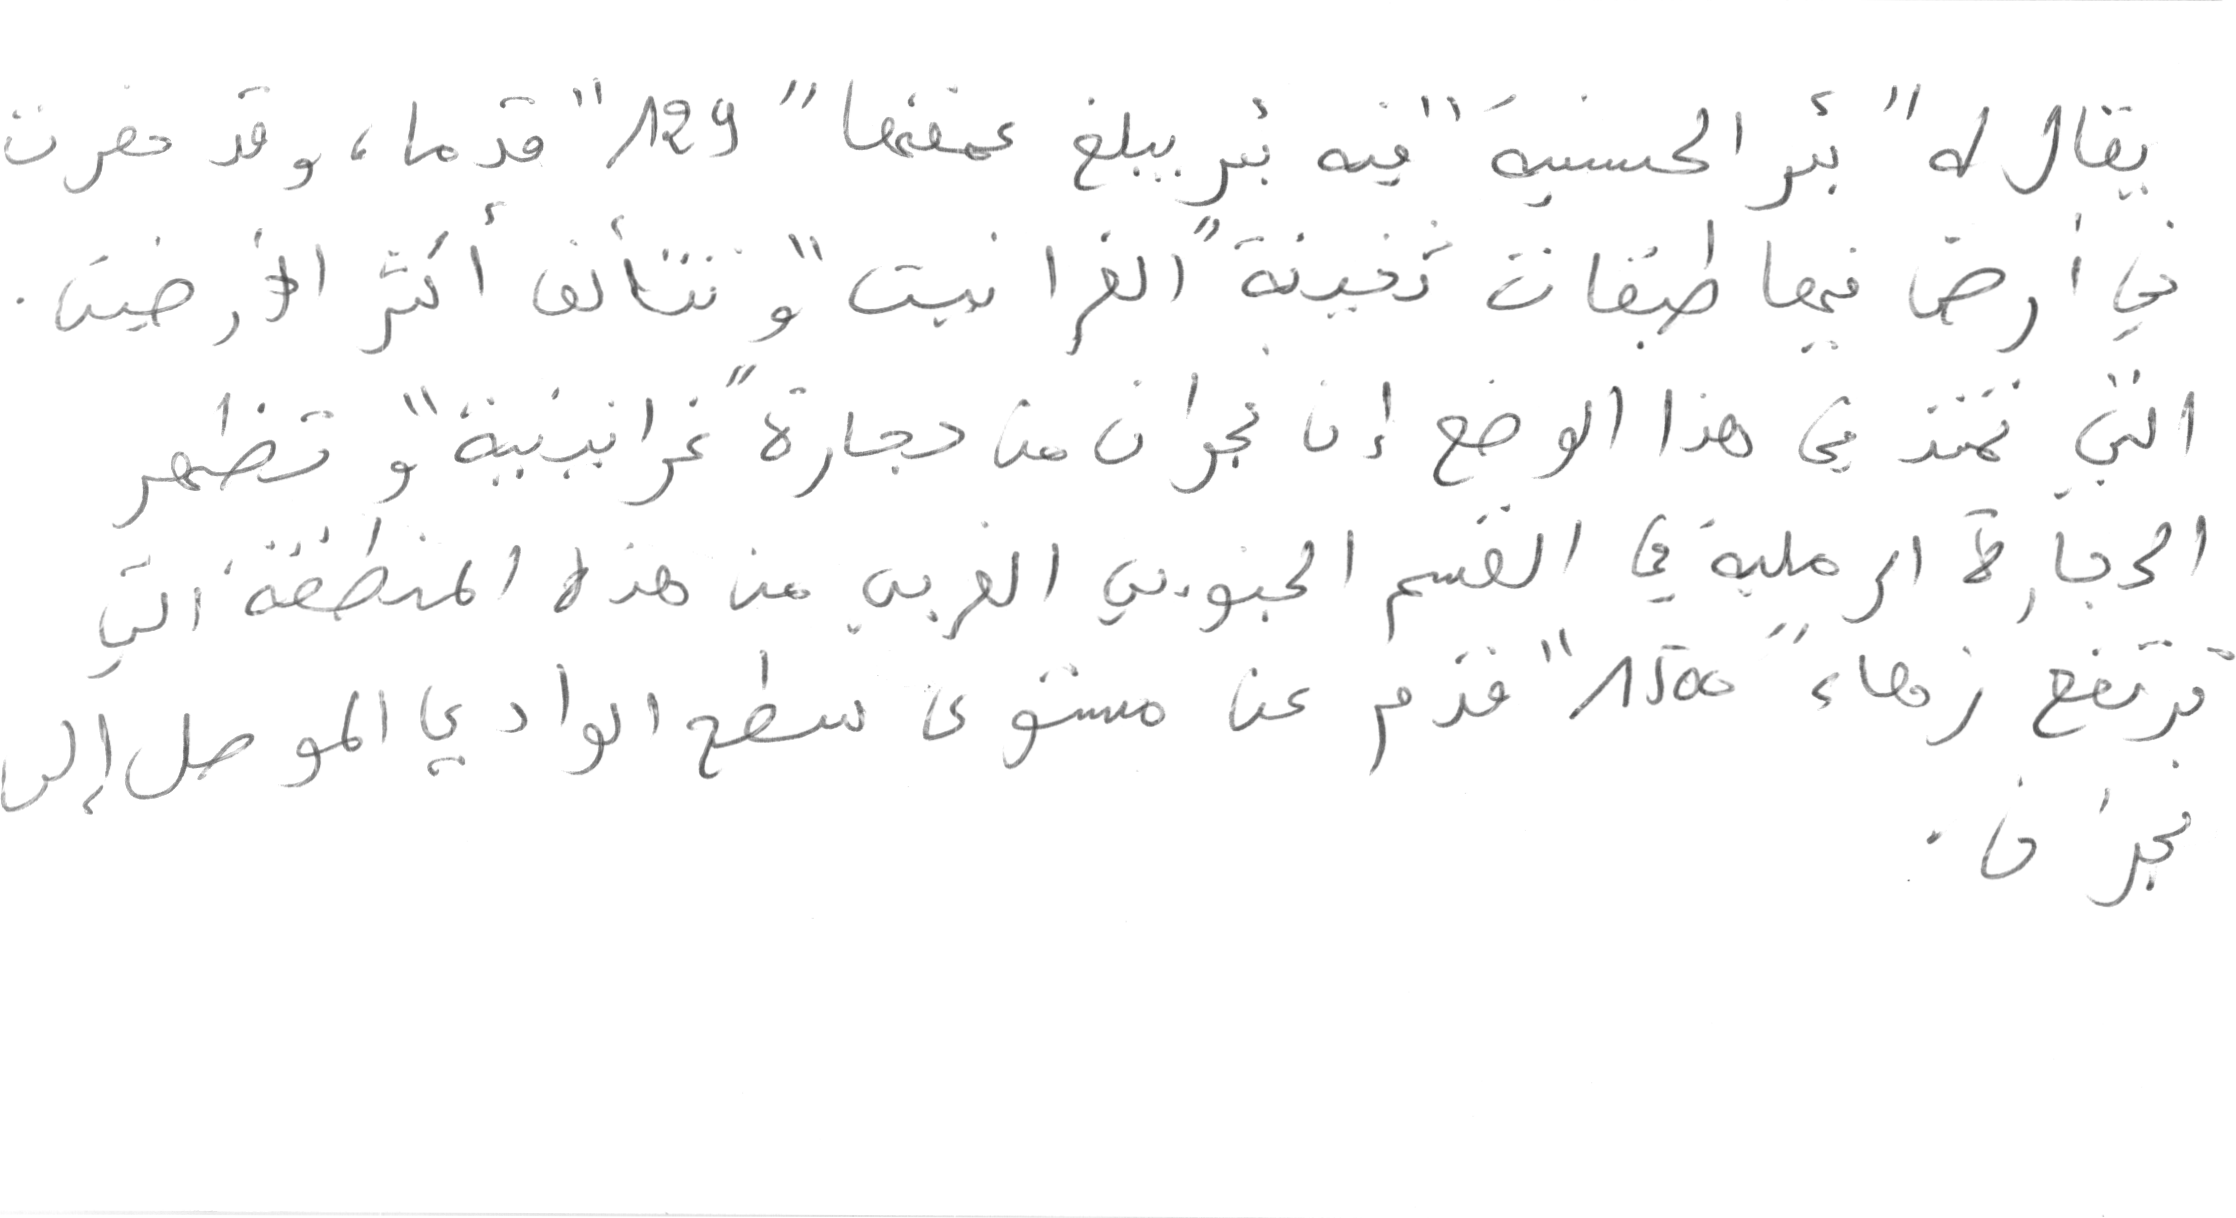 يقال له "بئر الحسنية" فيه بئر يبلغ عمقها "129" قدما، وقد حفرت
في أرض فيها طبقات ثخينة "الغرانيت" و تتألف أكثر الأرضين.
التي تمتد في هذا الوضع إن نجران من حجارة "غرانيتية" و تظهر
الحجارة الرملية في القسم الجنوبي الغربي من هذه المنطقة التي
ترتفع زهاء "1500" قدم عن مستوى سطح الوادي الموصل إلى
نجران.